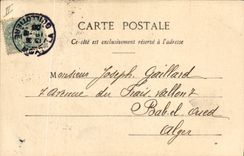 II
CARTE POSTALE
Ce côté est exclusivement réservé à l'adresse
Monsieur Joseph Gaillard
7 Avenue du Frais Vallon 7
Bab el oued
Alger